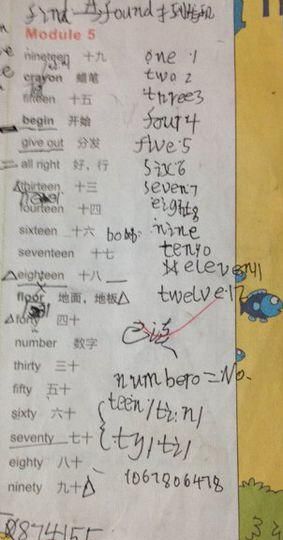 find → found 找到
Module 5
nineteen 十九 one 1
crayon 蜡笔 two 2
fifteen 十五 three3
begin 开始 four4
give out 分发 five 5
all right 好，行 six6
thirteen 十三 seven7
fourteen 十四 eight8
sixteen 十六 nine
seventeen 十七 ten10
eighteen 十八 eleven11
floor 地面，地板 twelve 12
forty 四十
已读
number 数字
thirty 三十 number=No.
fifty 五十 teen/ti:n/
sixty 六十
seventy 七十 ty/ti/
eighty 八十
ninety 九十 1067806478